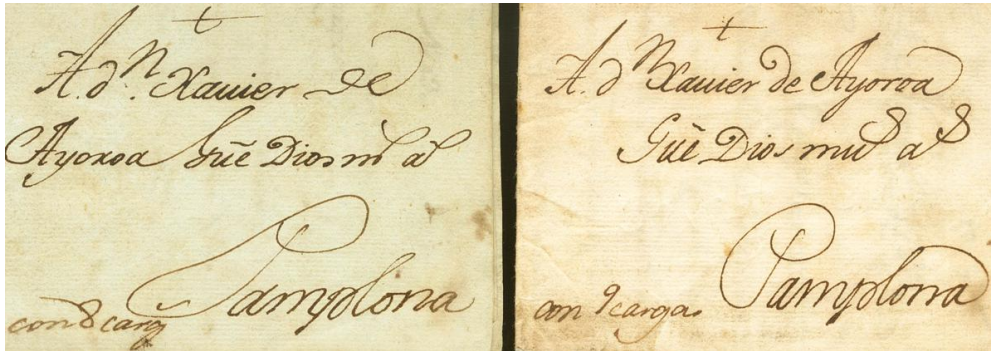 A. dⁿ. Xauier de
Ayoroa Gūe Dios mˢ aˢ
Pamplona
con 8 carg
A. dⁿ Xauier de Ayoroa
Gūe Dios muˢ aˢ
Pamplona
con 9 cargas